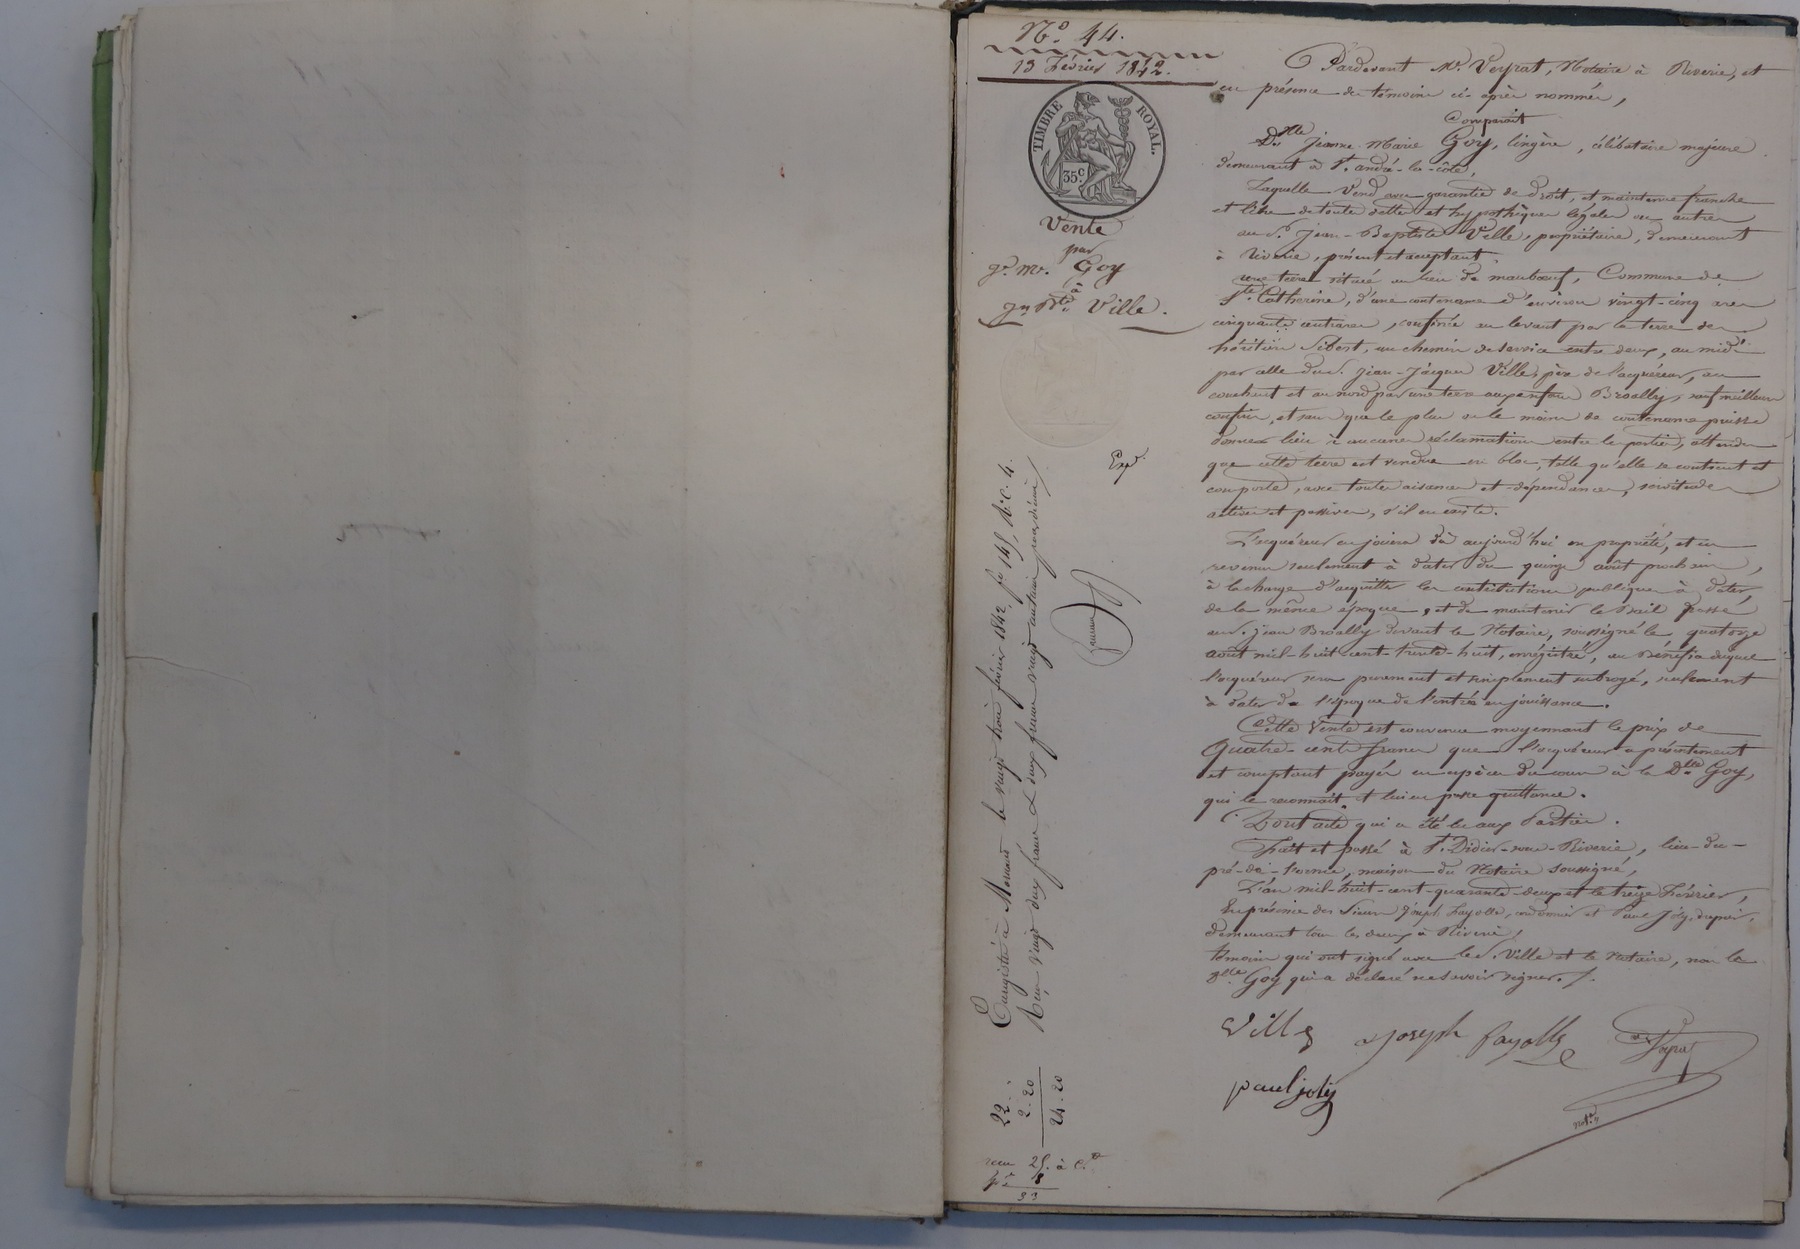 N.° 44.
13 Février 1842.
TIMBRE ROYAL.
35 c.
Vente
par
J.e M.ie Goy
à
J.n B.te Ville.
Exp.
Pardevant M.e Veyrat, Notaire à Riverie, et
en présence des témoins ci-après nommés,
Comparaît
D.lle Jeanne Marie Goy, lingère, célibataire majeure
demeurant à S.t andré-la-côte,
Laquelle Vend avec garantie de droit, et maintenue franche
et libre de toutes dettes et hypothèques légales ou autres
au S.r Jean-Baptiste Ville, propriétaire, demeurant
à Riverie, présent et acceptant
une terre située au lieu de maubœuf, Commune de
S.te Catherine, d'une contenance d'environ vingt-cinq ares
cinquante centiares, confinée au levant par la terre des
héritiers Sibert, un chemin de service entre deux, au midi
par celle du S.r Jean-Jacques Ville, père de l'acquéreur, au
couchant et au nord par une terre aux enfans Broally, sauf meilleurs
confins, et sans que le plus ou le moins de contenance puisse
donner lieu à aucunes réclamations entre les parties, attendu
que cette terre est vendue en bloc, telle qu'elle se contient et
comporte, avec toutes aisances et dépendances, servitudes
actives et passives, s'il en existe.
L'acquéreur en jouira dès aujourd'hui en propriété, et en
revenus seulement à dater du quinze août prochain,
à la charge d'acquitter les contributions publiques à dater
de la même époque, et de maintenir le Bail passé
au S.r Jean Broally devant le Notaire, soussigné le quatorze
août mil-huit-cent-trente-huit, enrégistré, au Bénéfice duquel
l'acquéreur sera purement et simplement subrogé, seulement
à dater de l'époque de l'entrée en jouissance.
Cette Vente est convenue moyennant le prix de
Quatre-cents francs que l'acquéreur a présentement
et comptant payés en espèces du cours à la D.lle Goy,
qui le reconnaît, et lui en passe quittance.
Dont acte qui a été lu aux Parties.
Fait et passé à S.t Didier-sous-Riverie, lieu-du-
pré-de-l'orme, maison du Notaire soussigné,
L'an mil-huit-cent-quarante-deux et le treize Février,
En présence des Sieurs Joseph Fayolle, cordonnier et Paul Joly,
demeurant tous les deux à Riverie,
témoins qui ont signé avec le S.r Ville et le Notaire, non la
D.lle Goy qui a déclaré ne savoir signer. /.
Ville Joseph fayolle Veyrat
paul joly
not.re
Enregistré à Mornant le vingt trois février 1842, f.o 145, R.o C. 4.
Reçu vingt deux francs & deux francs vingt centimes pour décime
22. "
2. 20
24. 20
reçu 25. à c.te
p.r 8
33